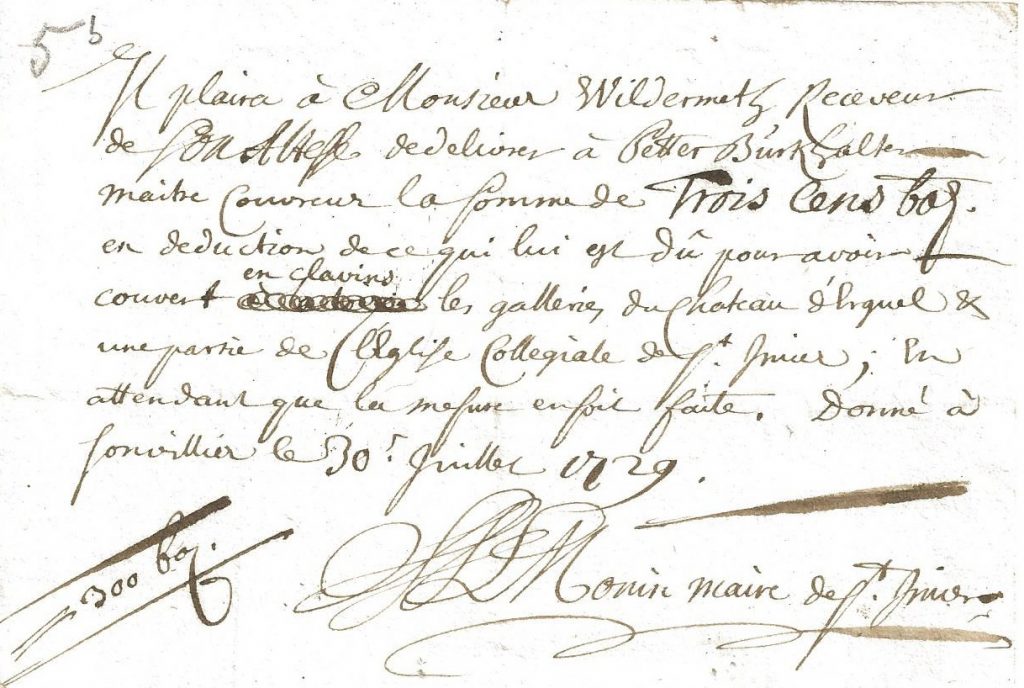 5 b
Il plaira à Monsieur Wildermeth Receveur
de Son Altesse de delivrer à Petter Burkhalter
maitre Couvreur la Somme de Trois Cens baz.
en deduction de ce qui lui est dû pour avoir
en clavins
couvert les galleries du Chateau d'Erguel &
une partie de l'Eglise Collegiale de St. Imier; En
attendant que la mesure en soit faite. Donné à
Sonvillier le 30.e Juillet 1729.
300 baz.
maire de St. Imier